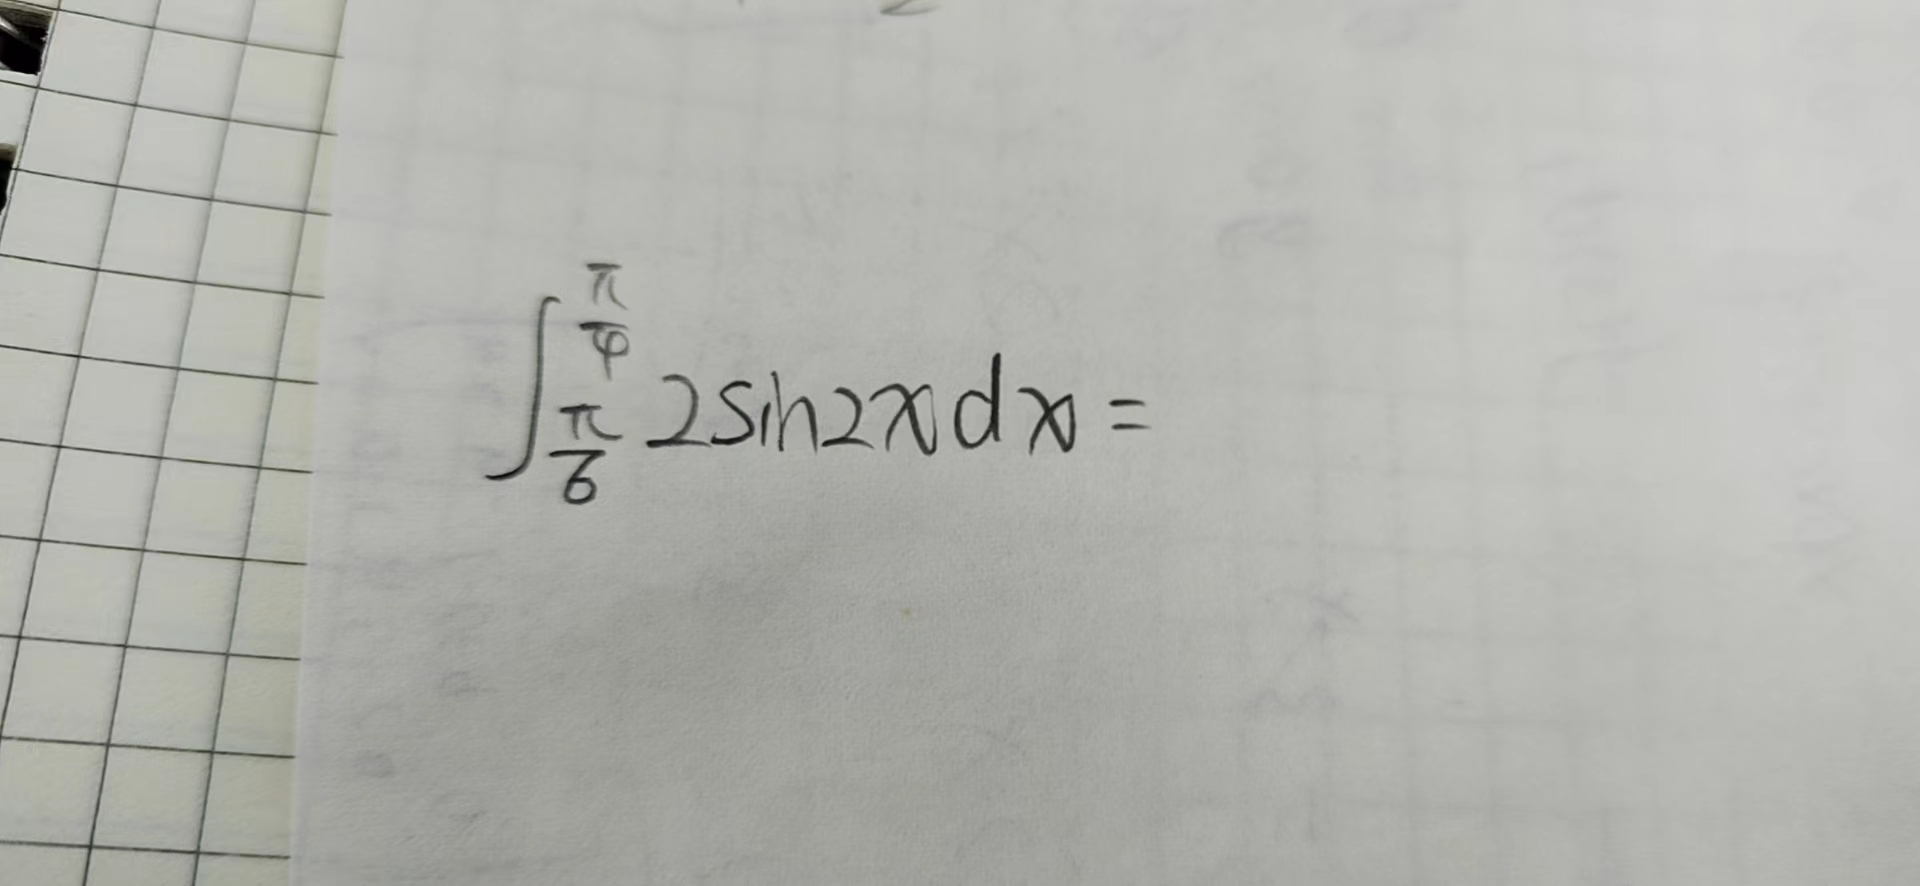 ∫_{π/6}^{π/4} 2sin2x dx =